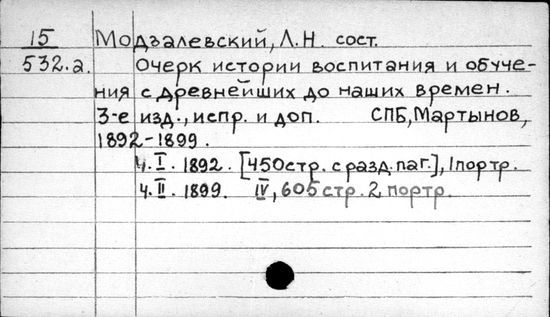 15 Модзалевский, Л.Н. сост.
532.а. Очерк истории воспитания и обуче-
ния с древнейших до наших времен.
3-е изд., испр. и доп. СПБ, Мартынов,
1892-1899.
Ч.I. 1892. [450стр. с разд. паг.], 1портр.
Ч.II. 1899. IV, 605стр. 2 портр.